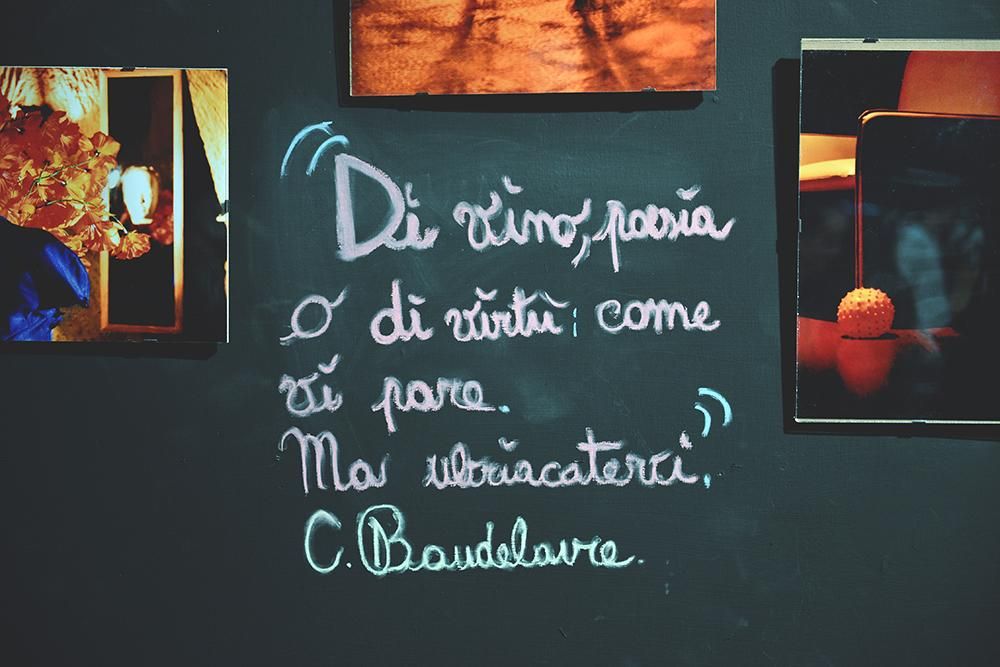 "Di vino, poesia
o di virtù: come
vi pare.
Ma ubriacatevi."
C. Baudelaire.